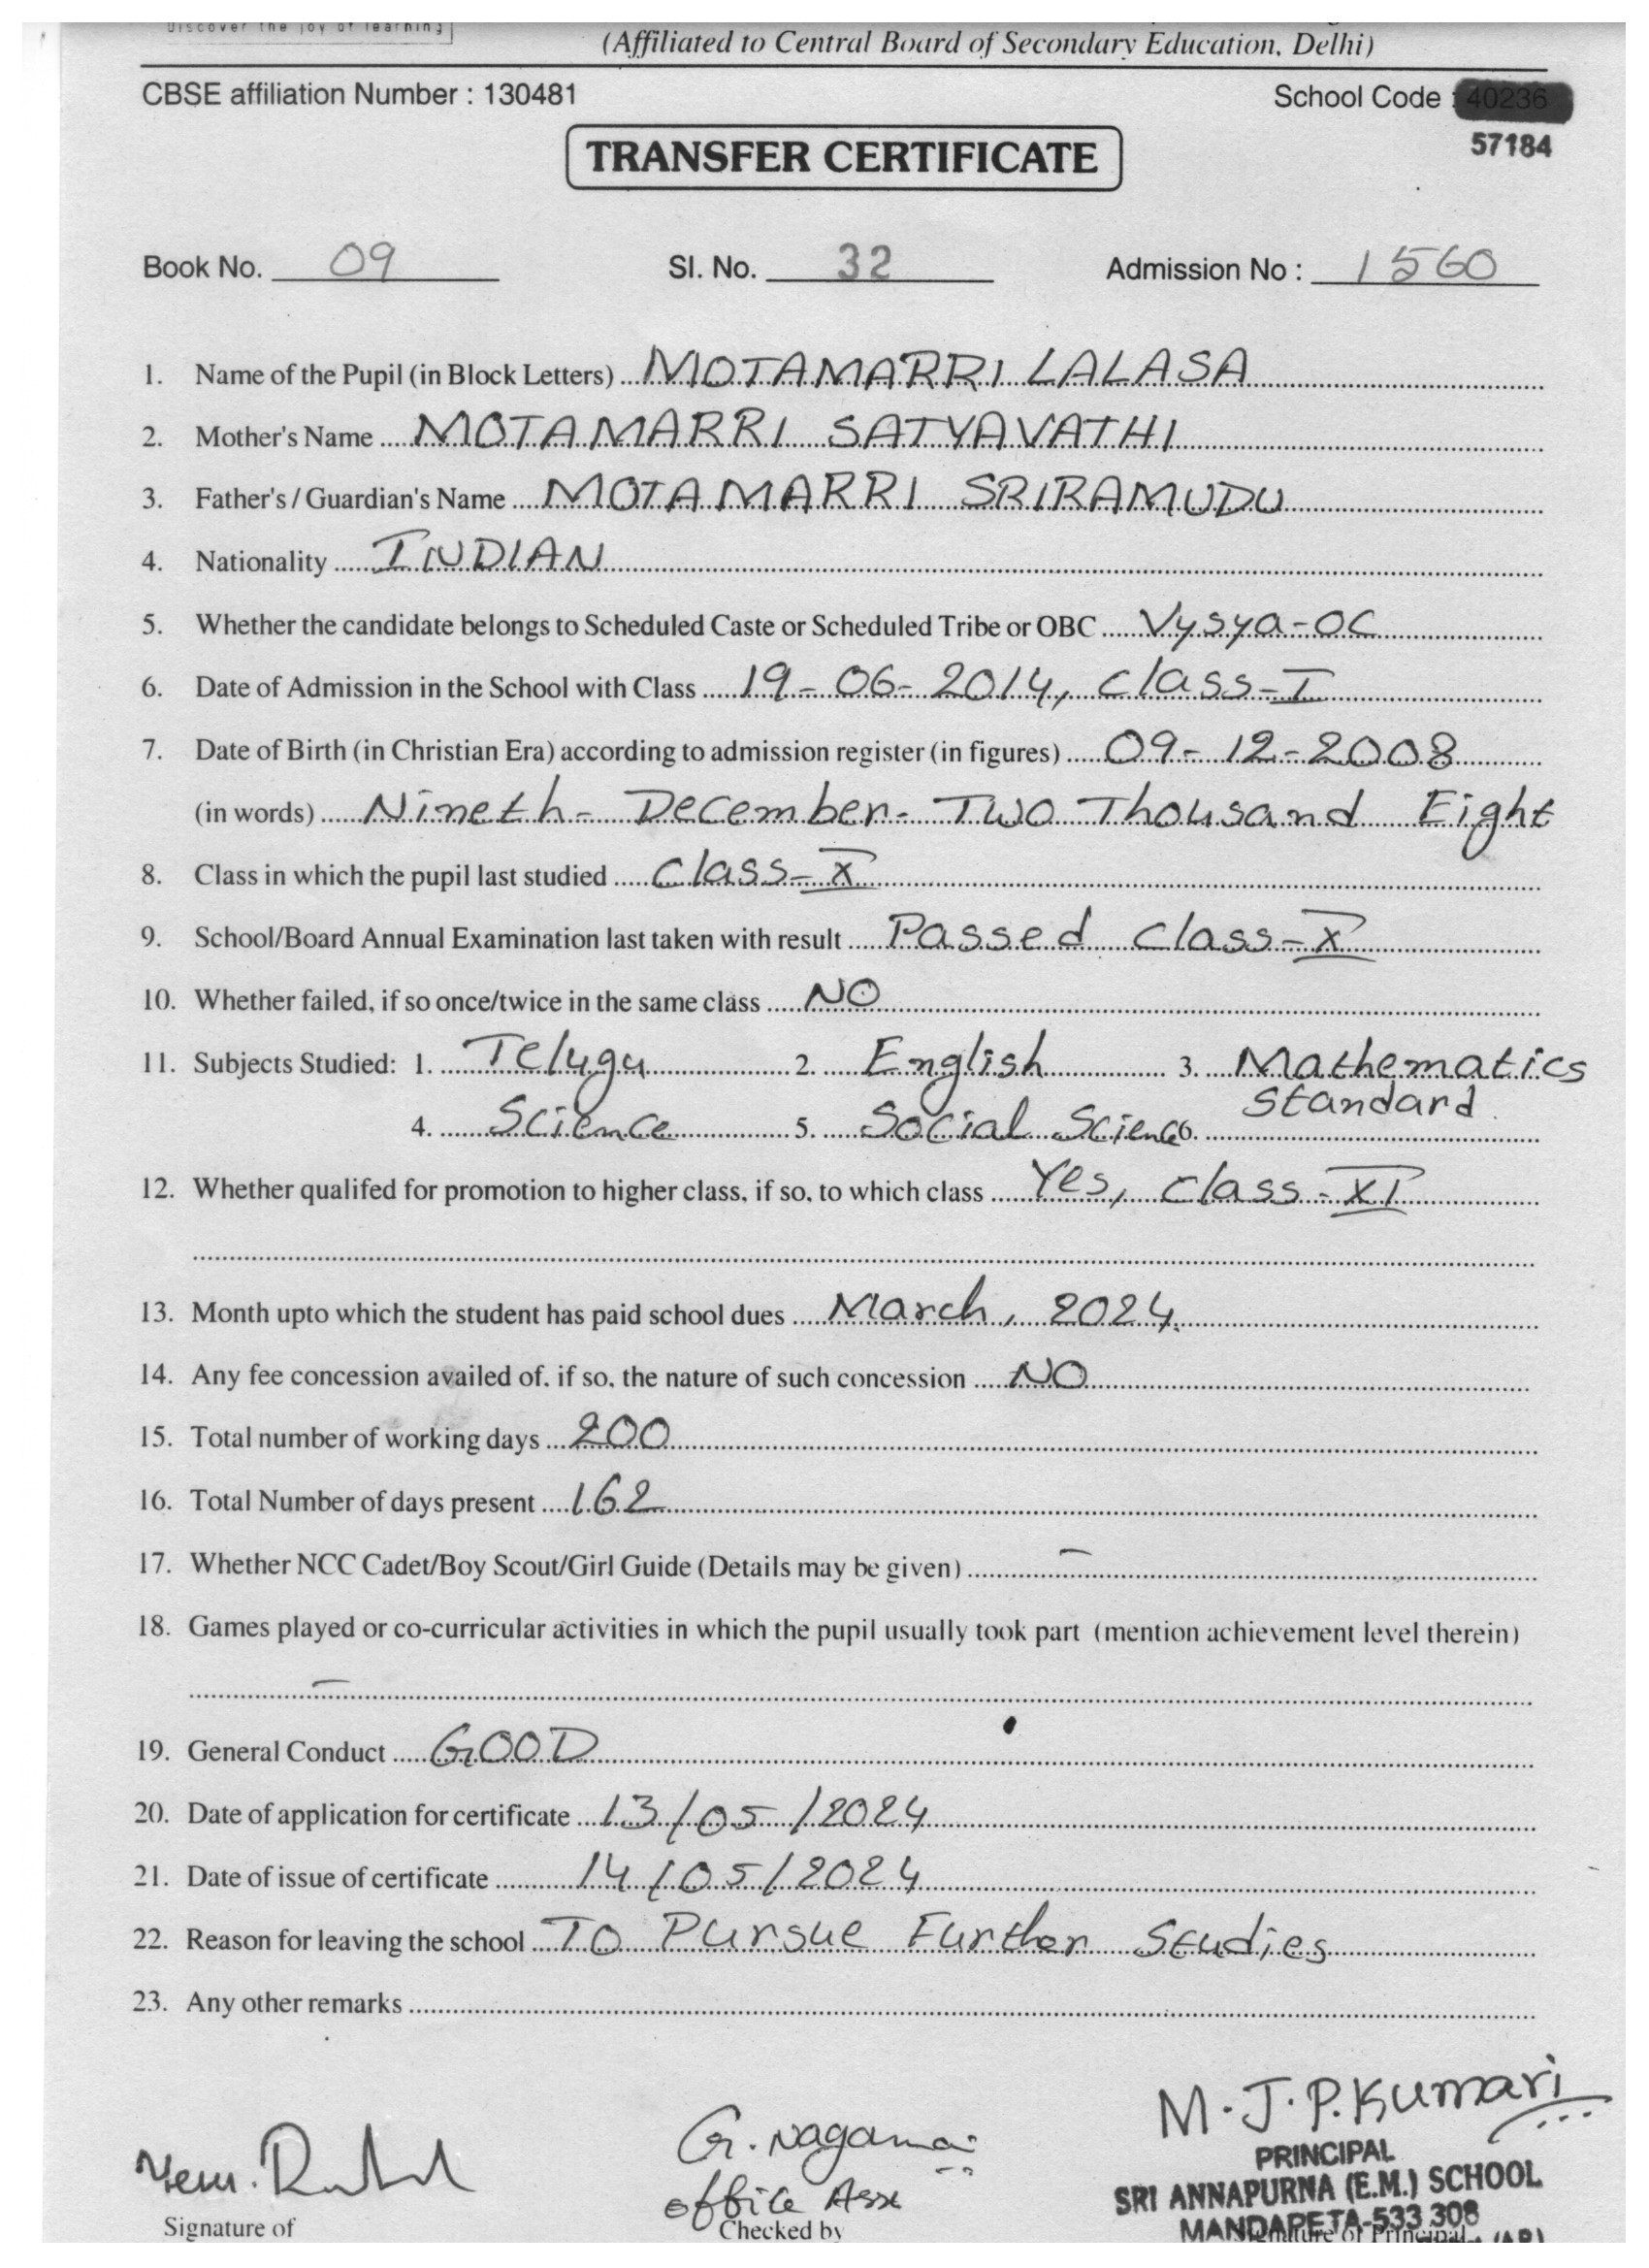 Discover the joy of learning
(Affiliated to Central Board of Secondary Education, Delhi)
CBSE affiliation Number : 130481 School Code : 40236
57184
TRANSFER CERTIFICATE
Book No. 09 Sl. No. 32 Admission No : 1560
1. Name of the Pupil (in Block Letters) MOTAMARRI LALASA
2. Mother's Name MOTAMARRI SATYAVATHI
3. Father's / Guardian's Name MOTAMARRI SRIRAMUDU
4. Nationality INDIAN
5. Whether the candidate belongs to Scheduled Caste or Scheduled Tribe or OBC Vysya-OC
6. Date of Admission in the School with Class 19-06-2014, Class-I
7. Date of Birth (in Christian Era) according to admission register (in figures) 09-12-2008
(in words) Nineth- December- Two Thousand Eight
8. Class in which the pupil last studied Class-X
9. School/Board Annual Examination last taken with result Passed Class-X
10. Whether failed, if so once/twice in the same class NO
11. Subjects Studied: 1. Telugu 2. English 3. Mathematics
Standard
4. Science 5. Social Science 6.
12. Whether qualifed for promotion to higher class, if so, to which class Yes, Class-XI
13. Month upto which the student has paid school dues March, 2024.
14. Any fee concession availed of, if so, the nature of such concession NO
15. Total number of working days 200
16. Total Number of days present 162
17. Whether NCC Cadet/Boy Scout/Girl Guide (Details may be given) –
18. Games played or co-curricular activities in which the pupil usually took part (mention achievement level therein)
–
19. General Conduct GOOD
20. Date of application for certificate 13/05/2024
21. Date of issue of certificate 14/05/2024
22. Reason for leaving the school To Pursue Further Studies
23. Any other remarks
M.J.P.Kumari
G. Nagamai
PRINCIPAL
SRI ANNAPURNA (E.M.) SCHOOL
office Asst
MANDAPETA-533 308
Signature of Checked by Signature of Principal
(AP)